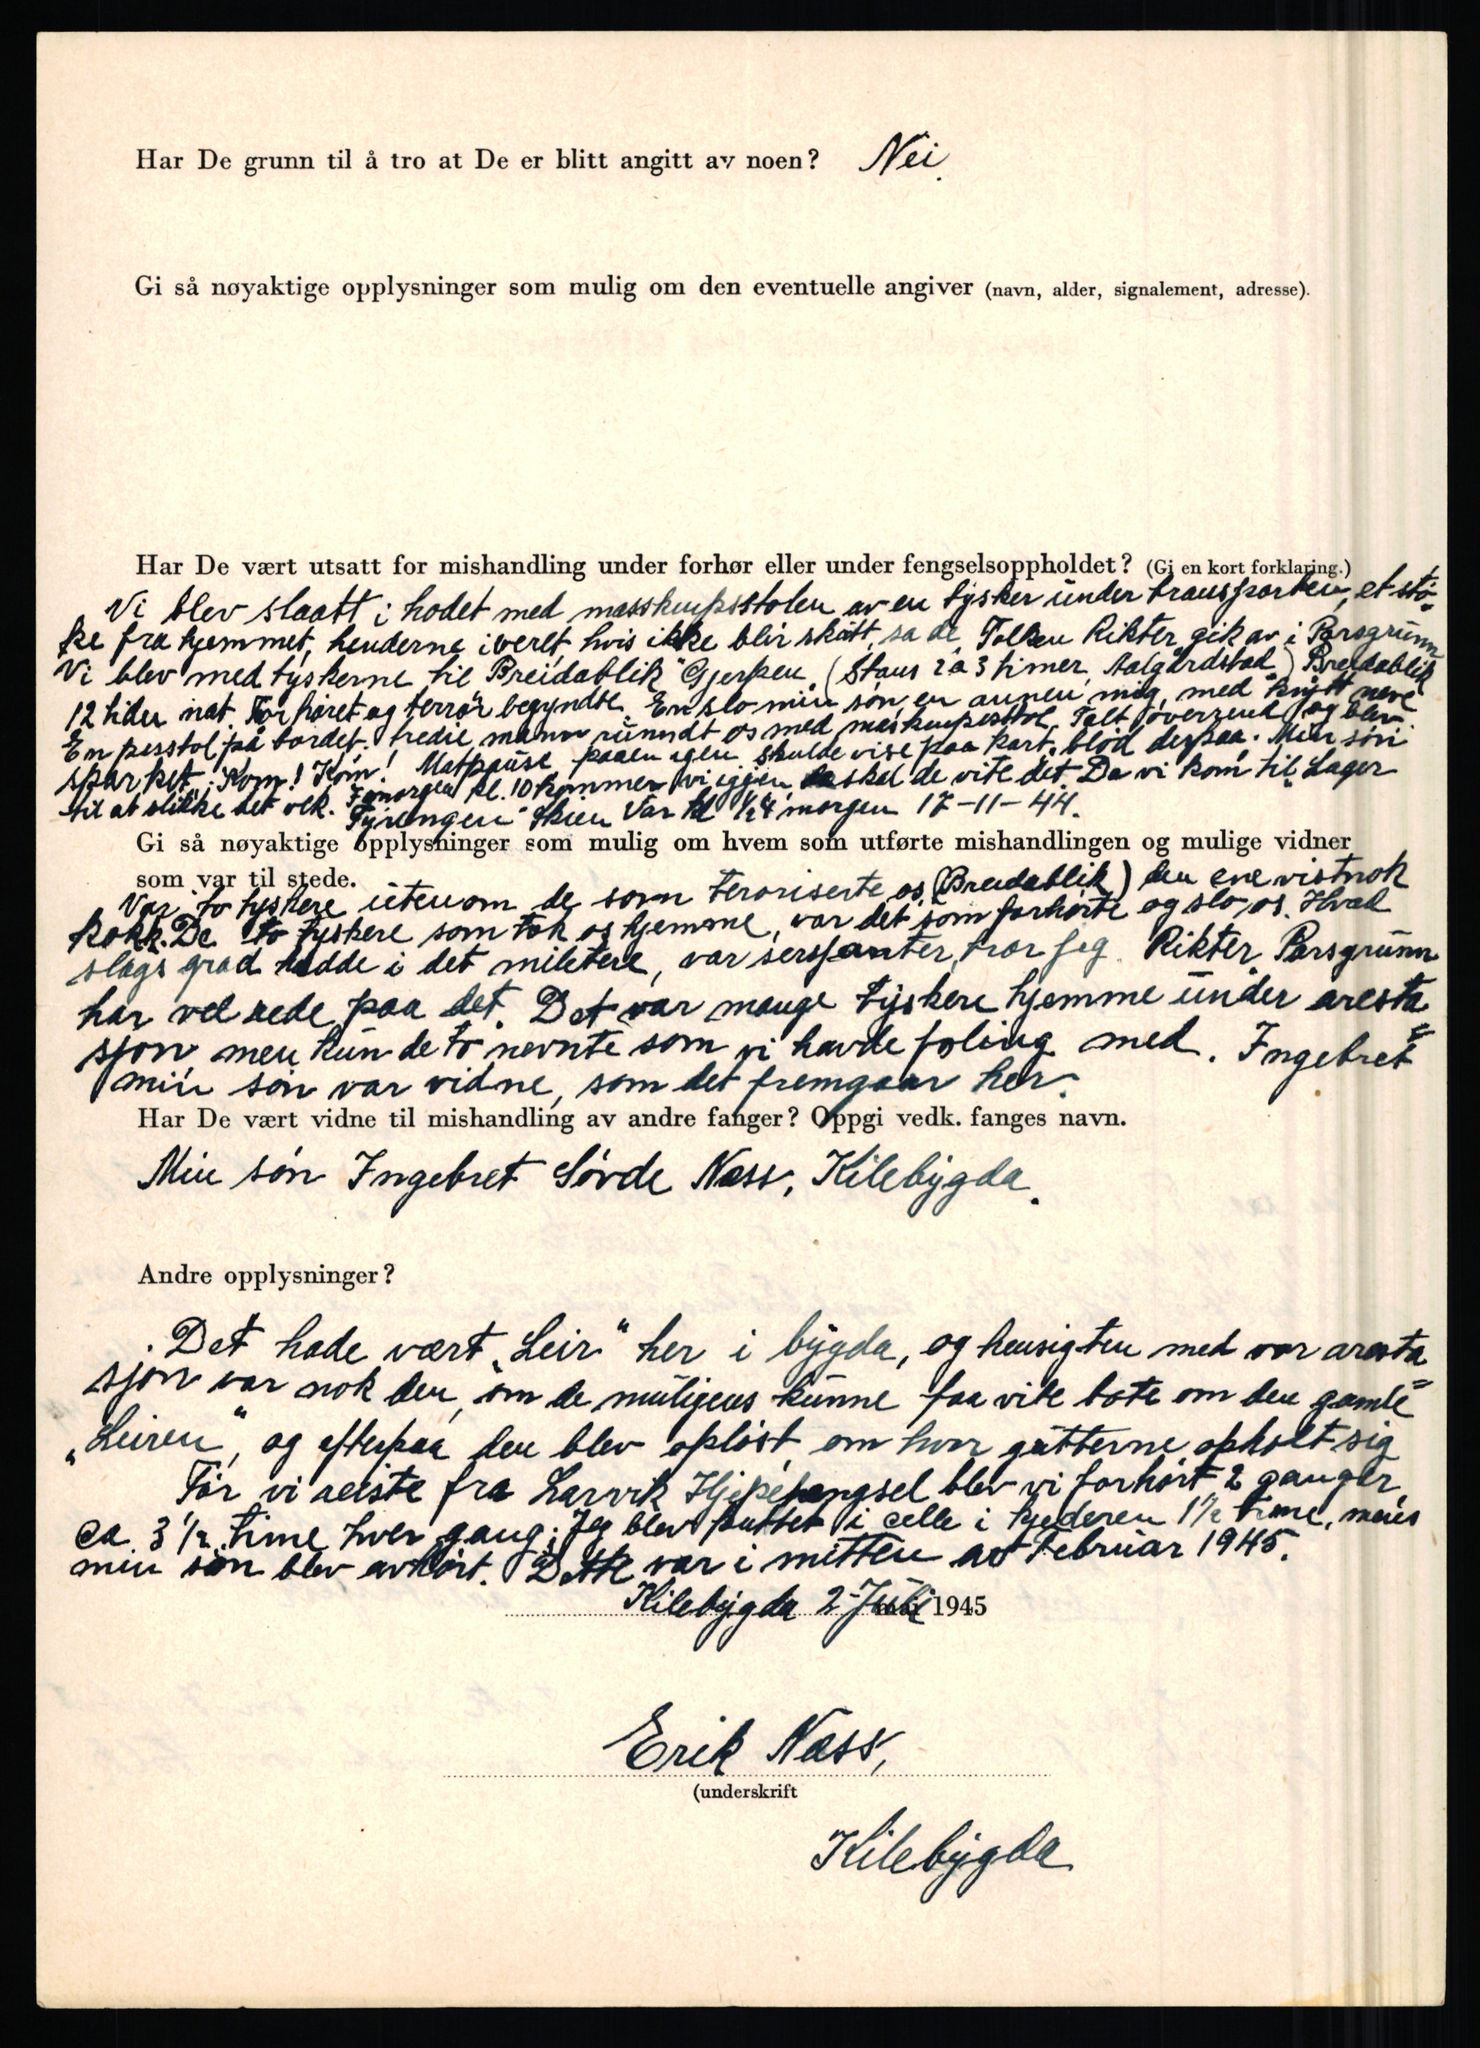 Har De grunn til å tro at De er blitt angitt av noen? Nei.
Gi så nøyaktige opplysninger som mulig om den eventuelle angiver (navn, alder, signalement, adresse).
Har De vært utsatt for mishandling under forhør eller under fengselsoppholdet? (Gi en kort forklaring.)
Vi blev slaatt i hodet med av en tysker under transporten, et stö-
ke fra hjemmet, henderne iveret hvis ikke blir skutt, sa de. Tolken Rikter gik av i Porsgrunn
Vi blev med tyskerne til "Breidablik" Gjerpen. (Stans 2 a 3 timer, Aalgårdstad) Breidablik
12 tiden nat. Forhöret og terrör begyndte. En slo min sön, en annen mig, med knytt neve
En pesstol på bordet. tredie mann rundt os med maskinpesstol. Falt overende og blev
sparket: Kom! Kom! Matpause paaen igen. Skulde vise paa kart, blod derpaa. Min sön
til at slikke det vek. I morgen kl. 10 kommer vi igjen, da skal de vite det. Da vi kom til "Lager
Fjirengen" Skien var kl 1/2 4 morgen 17-11-44.
Gi så nøyaktige opplysninger som mulig om hvem som utførte mishandlingen og mulige vidner
som var til stede.
Var to tyskere utenom de som teroriserte os (Breidablik) den ene vistnok
kokk. De to tyskere som tok os hjemme, var det som forhörte og slo os. Hvad
slags grad hadde i det militere, var sersjanter, tror jeg. Rikter Porsgrunn
har vel rede paa det. Det var mange tyskere hjemme under aresta=
sjon men kun de to nevnte som vi havde föling med. Ingebret
min sön var vidne, som det fremgaar her.
Har De vært vidne til mishandling av andre fanger? Oppgi vedk. fanges navn.
Min sön Ingebret Sörde Næss, Kilebygda.
Andre opplysninger?
Det hade vært "Leir" her i bygda, og hensigten med vor aresta=
sjon var nok den, om de muligens kunne faa vite bote om den gamle
"Leiren", og efterpaa den blev oplöst, om hvor gutterne opholt sig
För vi reiste fra Larvik Hjelpefengsel blev vi forhört 2 ganger
ca. 3 1/2 time hver gang; Jeg blev puttet i celle i kjederen 1 1/2 time, mens
min sön blev avhört. Dette var i mitten av Februar 1945.
Kilebygda 2-Juli 1945
Erik Næss,
(underskrift
Kilebygda